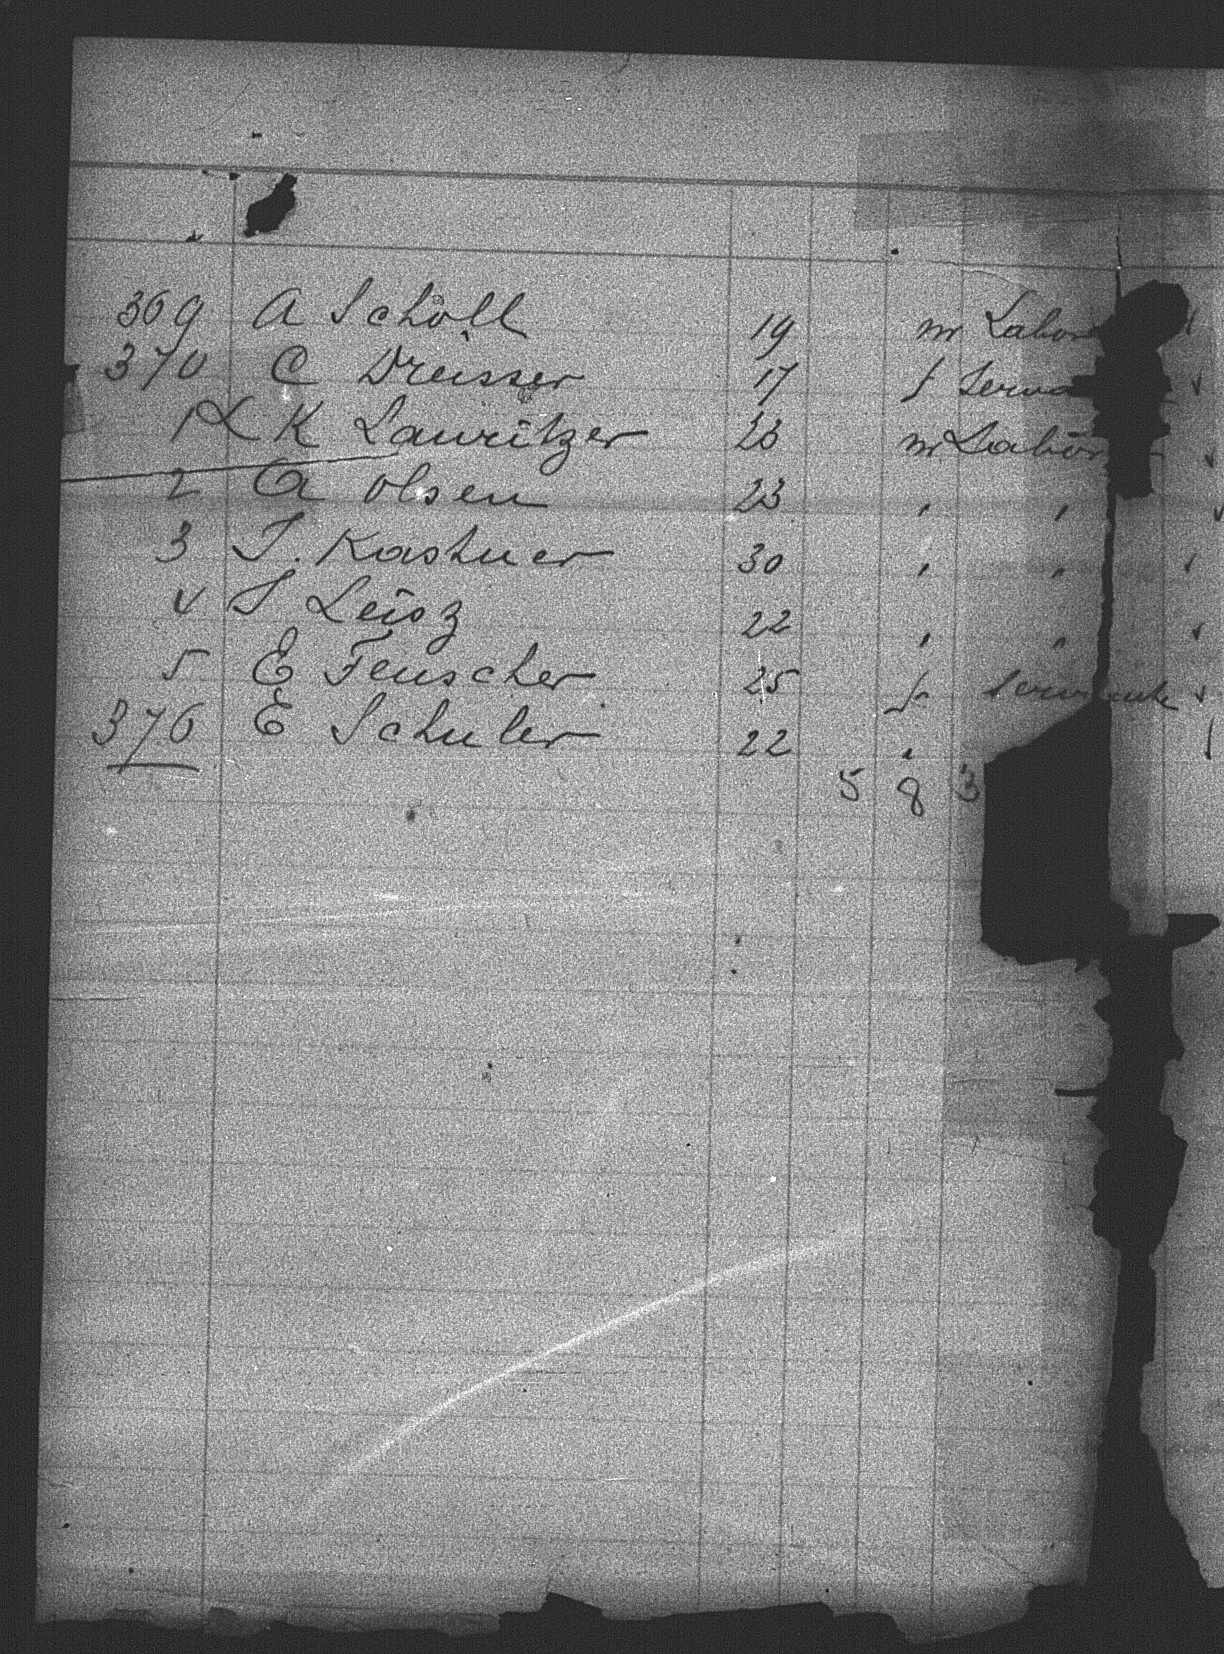 369 A Scholl 19 m Labor
370 C Dreisser 17 f Serva
1 K Lauritzer 23 m Labor
2 A Olsen 23 " "
3 J. Kastner 30 " "
4 J Leisz 22 " "
5 E Feuscher 25 f
376 E Schuler 22 "
5 8 3